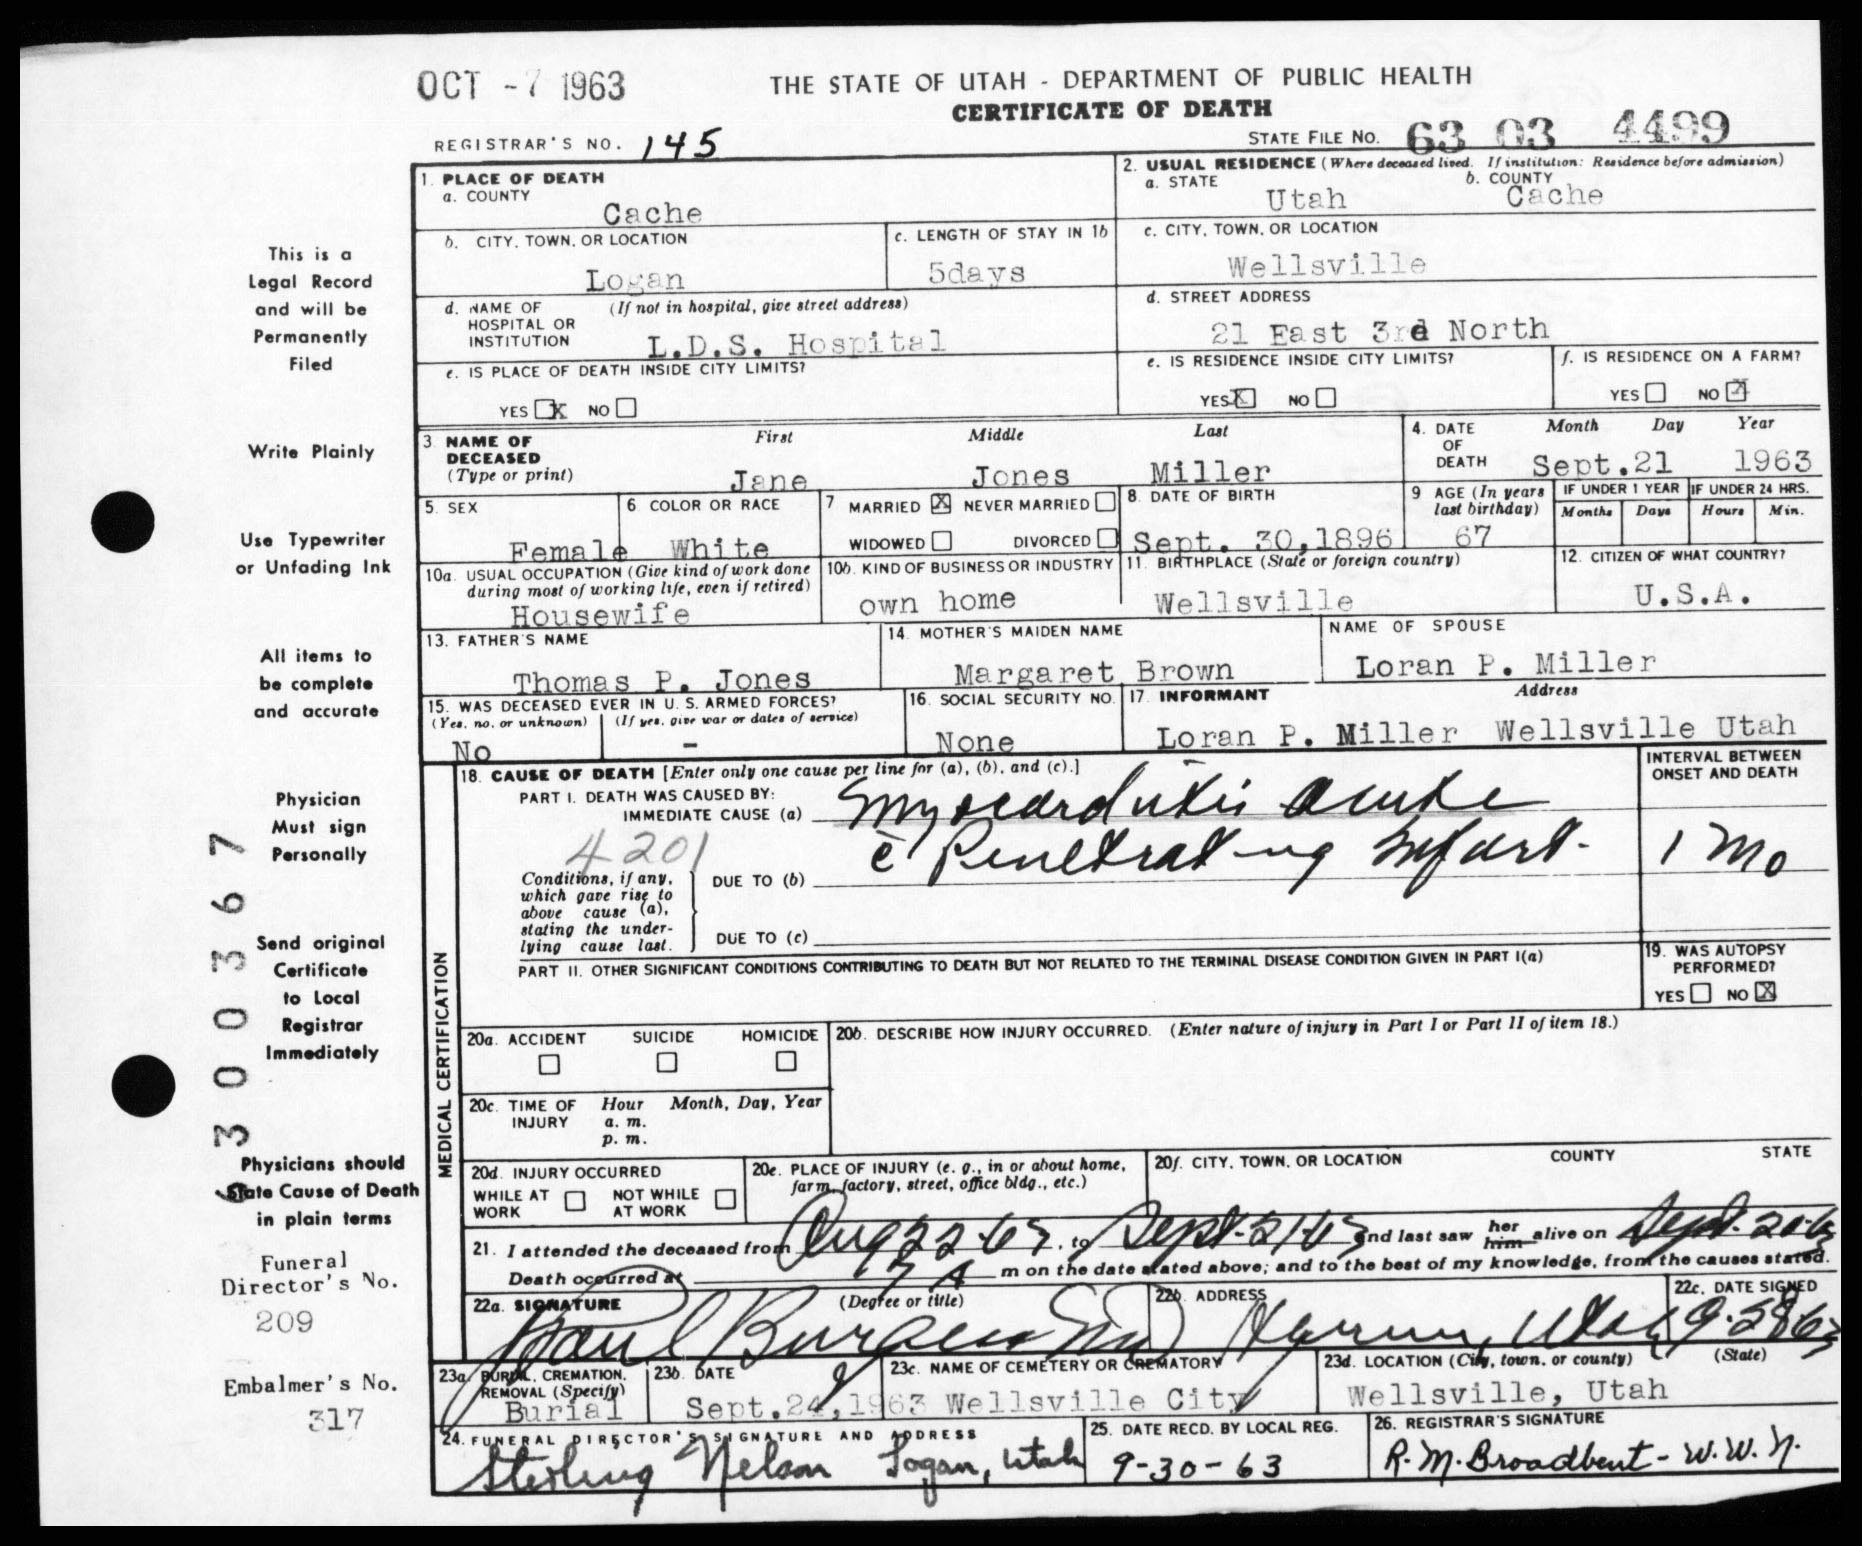 OCT -7 1963
THE STATE OF UTAH - DEPARTMENT OF PUBLIC HEALTH
CERTIFICATE OF DEATH
REGISTRAR'S NO. 145
STATE FILE NO. 63 03 4499
1. PLACE OF DEATH
a. COUNTY
Cache
2. USUAL RESIDENCE (Where deceased lived. If institution: Residence before admission)
a. STATE
Utah
b. COUNTY
Cache
b. CITY, TOWN, OR LOCATION
Logan
c. LENGTH OF STAY IN 1b
5days
c. CITY, TOWN, OR LOCATION
Wellsville
d. NAME OF HOSPITAL OR INSTITUTION
(If not in hospital, give street address)
L.D.S. Hospital
d. STREET ADDRESS
21 East 3rd North
e. IS PLACE OF DEATH INSIDE CITY LIMITS?
YES X NO
e. IS RESIDENCE INSIDE CITY LIMITS?
YES X NO
f. IS RESIDENCE ON A FARM?
YES NO X
3. NAME OF DECEASED
(Type or print)
First Middle Last
Jane Jones Miller
4. DATE OF DEATH
Month Day Year
Sept.21 1963
5. SEX
Female
6 COLOR OR RACE
White
7 MARRIED X NEVER MARRIED
WIDOWED DIVORCED
8. DATE OF BIRTH
Sept. 30,1896
9 AGE (In years last birthday)
67
IF UNDER 1 YEAR
Months Days
IF UNDER 24 HRS.
Hours Min.
10a. USUAL OCCUPATION (Give kind of work done during most of working life, even if retired)
Housewife
10b. KIND OF BUSINESS OR INDUSTRY
own home
11. BIRTHPLACE (State or foreign country)
Wellsville
12. CITIZEN OF WHAT COUNTRY?
U.S.A.
13. FATHER'S NAME
Thomas P. Jones
14. MOTHER'S MAIDEN NAME
Margaret Brown
NAME OF SPOUSE
Loran P. Miller
15. WAS DECEASED EVER IN U. S. ARMED FORCES?
(Yes, no, or unknown) (If yes, give war or dates of service)
No -
16. SOCIAL SECURITY NO.
None
17. INFORMANT Address
Loran P. Miller Wellsville Utah
MEDICAL CERTIFICATION
18. CAUSE OF DEATH [Enter only one cause per line for (a), (b), and (c).]
INTERVAL BETWEEN ONSET AND DEATH
PART I. DEATH WAS CAUSED BY:
IMMEDIATE CAUSE (a) Myocarditis acute
4201
Conditions, if any, which gave rise to above cause (a), stating the underlying cause last.
DUE TO (b) c̄ Penetrating Infarct.
1 Mo
DUE TO (c)
PART II. OTHER SIGNIFICANT CONDITIONS CONTRIBUTING TO DEATH BUT NOT RELATED TO THE TERMINAL DISEASE CONDITION GIVEN IN PART I(a)
19. WAS AUTOPSY PERFORMED?
YES NO X
20a. ACCIDENT SUICIDE HOMICIDE
20b. DESCRIBE HOW INJURY OCCURRED. (Enter nature of injury in Part I or Part II of item 18.)
20c. TIME OF INJURY
Hour Month, Day, Year
a. m.
p. m.
20d. INJURY OCCURRED
WHILE AT WORK NOT WHILE AT WORK
20e. PLACE OF INJURY (e. g., in or about home, farm, factory, street, office bldg., etc.)
20f. CITY, TOWN, OR LOCATION COUNTY STATE
21. I attended the deceased from Aug 22-63, to Sept-21-63 and last saw her him alive on Sept. 20-63
Death occurred at 7 A m on the date stated above; and to the best of my knowledge, from the causes stated.
22a. SIGNATURE (Degree or title)
Paul Burgess MD
22b. ADDRESS
Hyrum, Utah
22c. DATE SIGNED
9-28-63
23a. BURIAL, CREMATION, REMOVAL (Specify)
Burial
23b. DATE
Sept.24,1963
23c. NAME OF CEMETERY OR CREMATORY
Wellsville City
23d. LOCATION (City, town, or county) (State)
Wellsville, Utah
24. FUNERAL DIRECTOR'S SIGNATURE AND ADDRESS
Sterling Nelson Logan, Utah
25. DATE RECD. BY LOCAL REG.
9-30-63
26. REGISTRAR'S SIGNATURE
R. M. Broadbent - W. W. N.
This is a
Legal Record
and will be
Permanently
Filed
Write Plainly
Use Typewriter
or Unfading Ink
All items to
be complete
and accurate
Physician
Must sign
Personally
Send original
Certificate
to Local
Registrar
Immediately
Physicians should
State Cause of Death
in plain terms
Funeral
Director's No.
209
Embalmer's No.
317
6300367